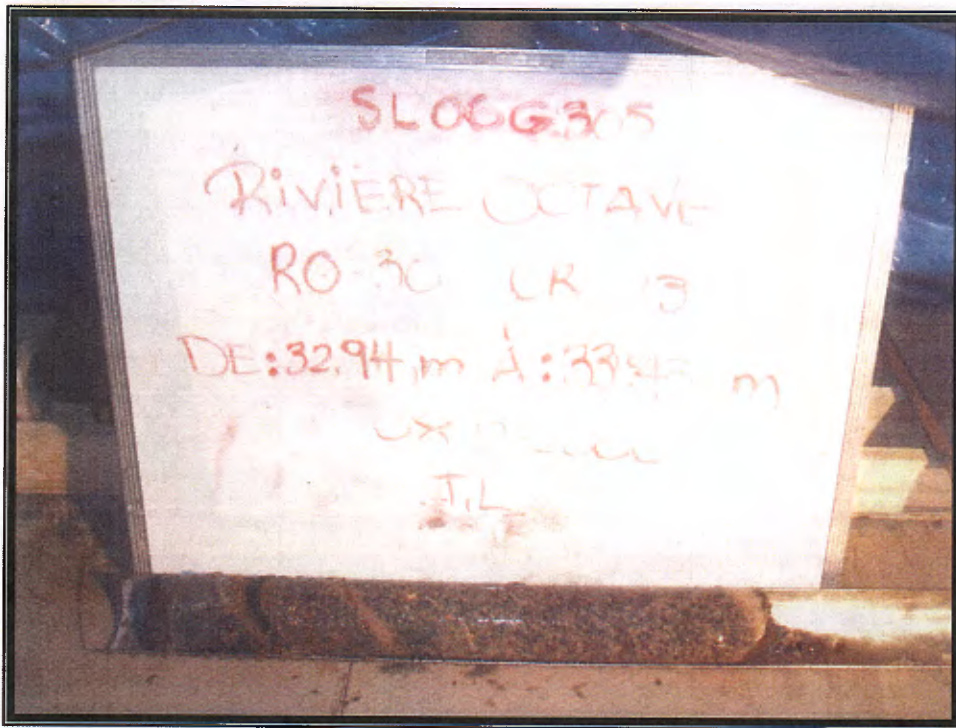 SLOGG305
RIVIÈRE OCTAVE
RO-30 CR
DE: 32.94 m À: 33.43 m
T.L